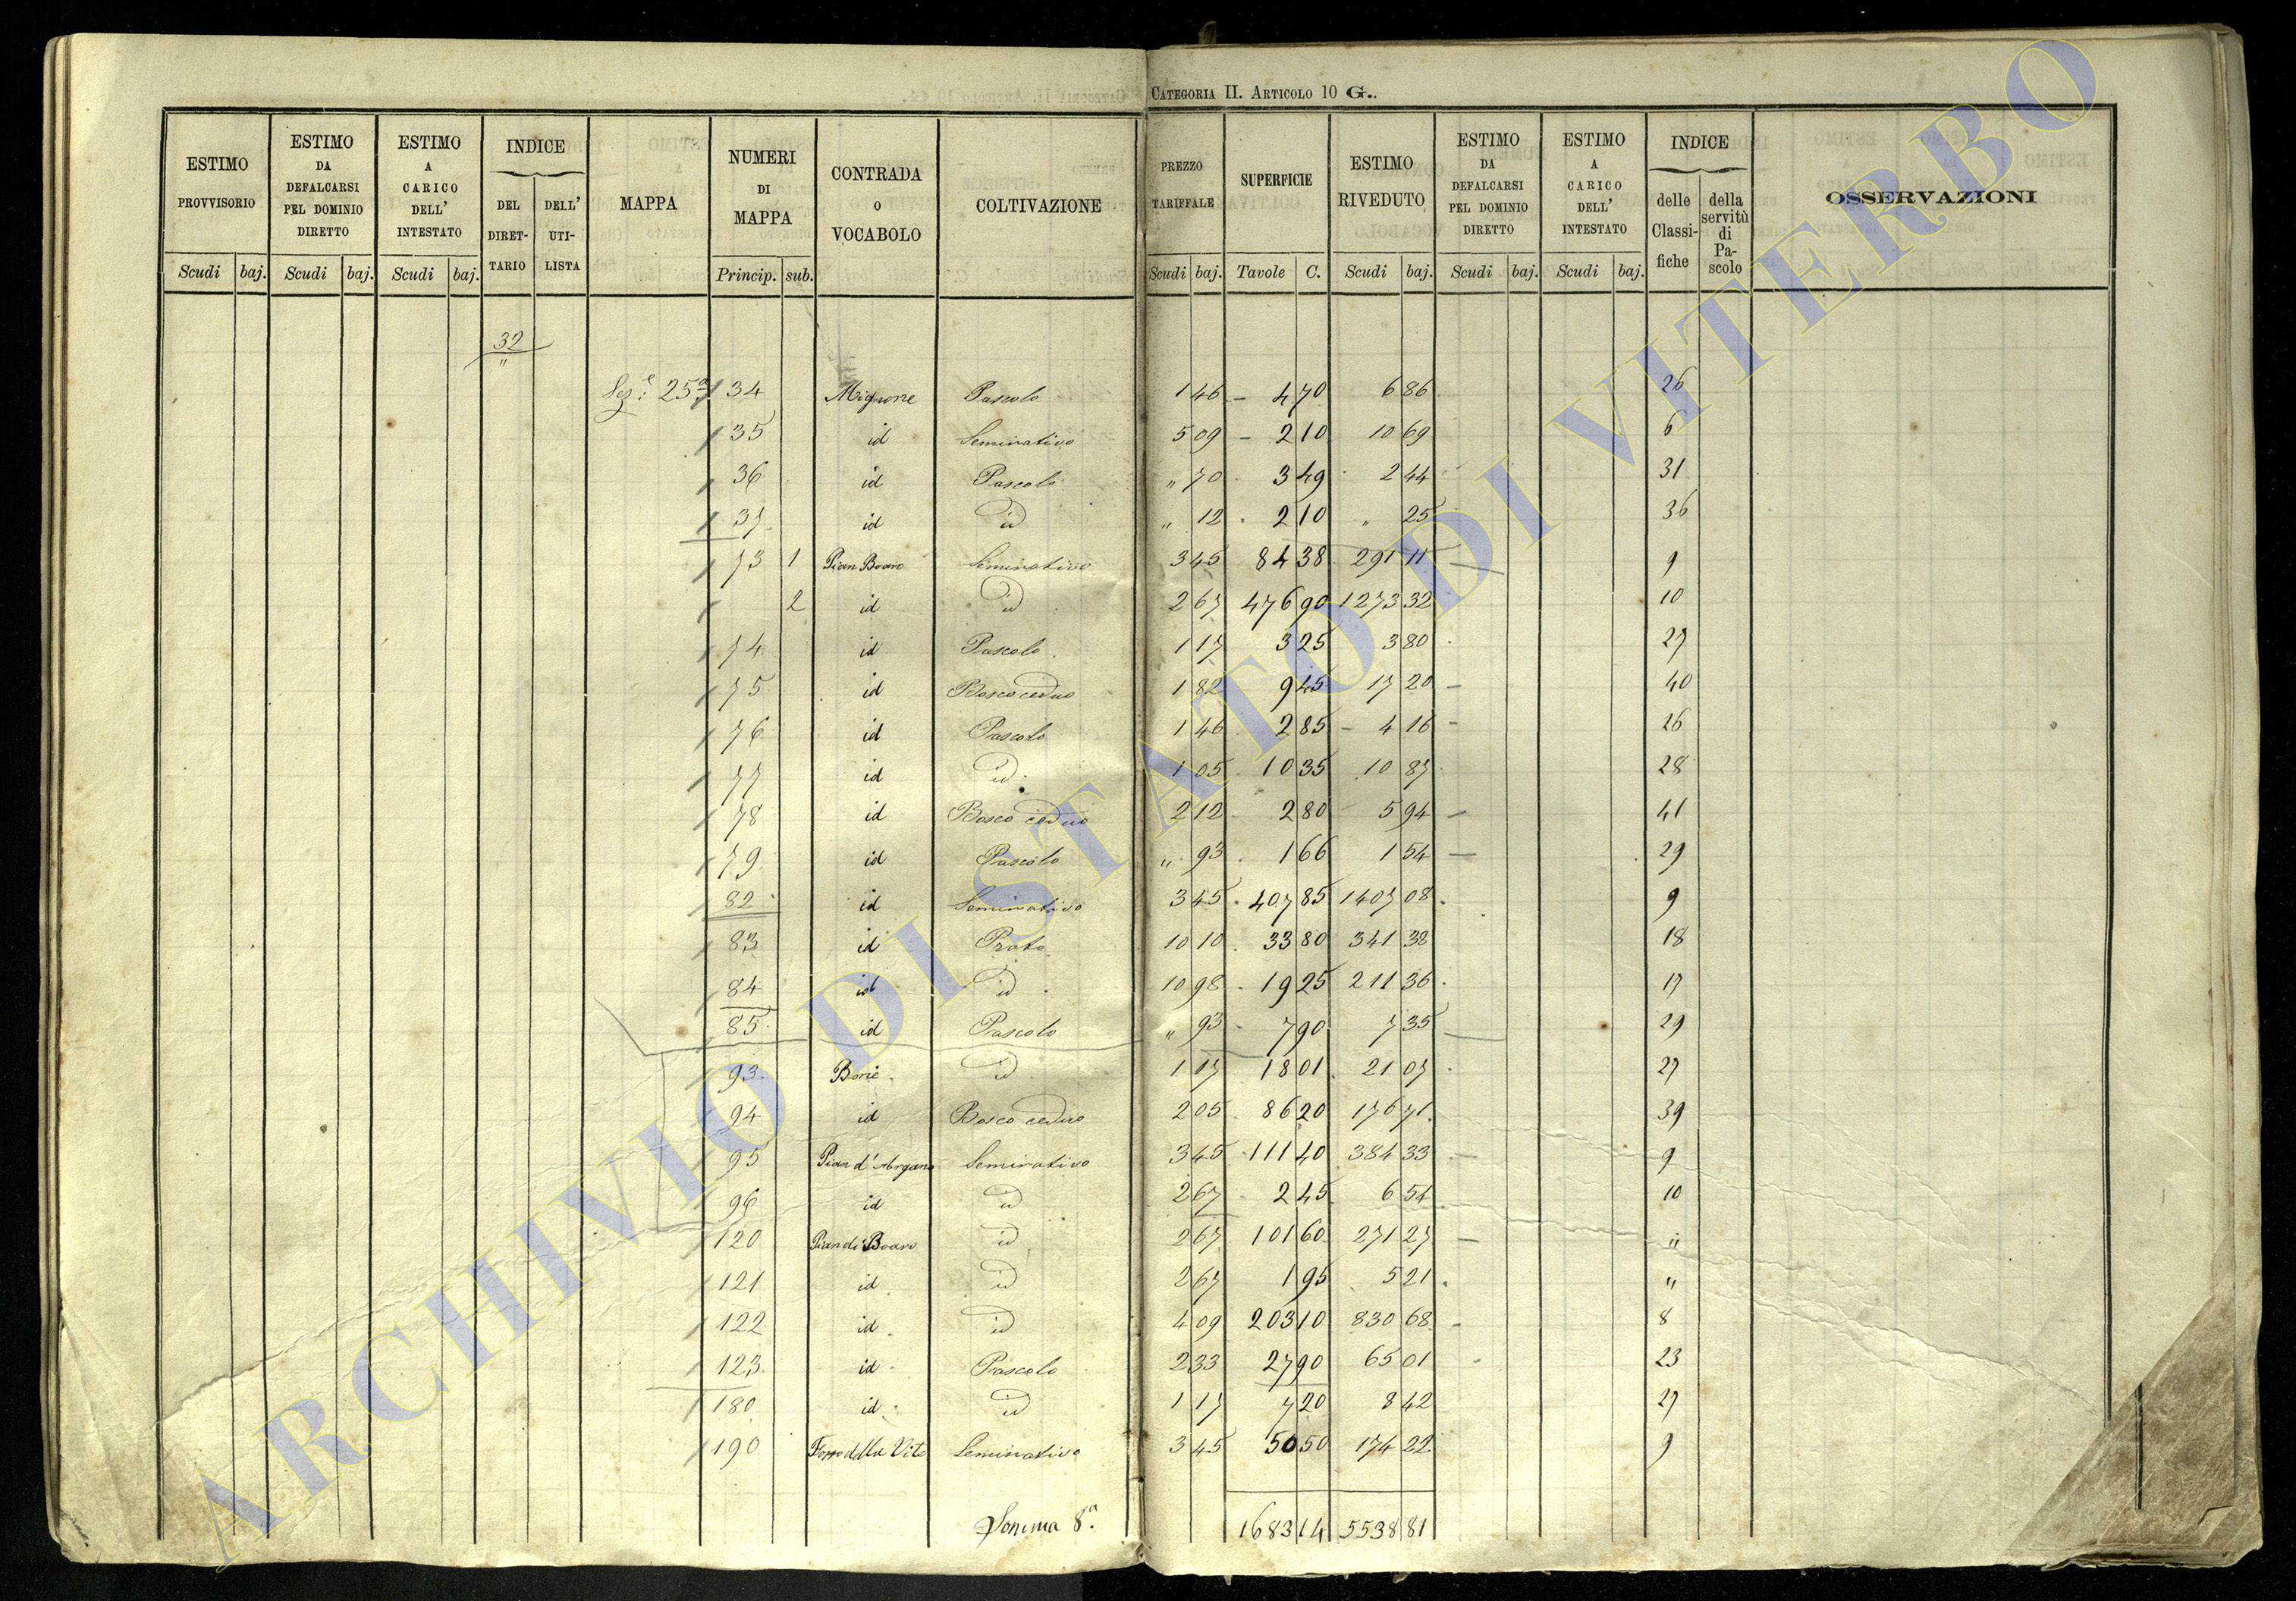 CATEGORIA II. ARTICOLO 10 G..
ESTIMO PROVVISORIO Scudi baj.
ESTIMO DA DEFALCARSI PEL DOMINIO DIRETTO Scudi baj.
ESTIMO A CARICO DELL' INTESTATO Scudi baj.
INDICE DEL DIRETTARIO DELL' UTILISTA
MAPPA
NUMERI DI MAPPA Princip. sub.
CONTRADA O VOCABOLO
COLTIVAZIONE
PREZZO TARIFFALE Scudi baj.
SUPERFICIE Tavole C.
ESTIMO RIVEDUTO Scudi baj.
ESTIMO DA DEFALCARSI PEL DOMINIO DIRETTO Scudi baj.
ESTIMO A CARICO DELL' INTESTATO Scudi baj.
INDICE delle Classifiche della servitù di Pascolo
OSSERVAZIONI
32
"
Sez:e 25a 34 Mignone Pascolo 1 46 4 70 6 86 26
35 id Seminativo 5 09 2 10 10 69 6
36 id Pascolo " 70 3 49 2 44 31
37 id id " 12 2 10 " 25 36
73 1 Pian Boaro Seminativo 3 45 84 38 291 11 9
2 id id 2 67 476 90 1273 32 10
74 id Pascolo 1 17 3 25 3 80 27
75 id Bosco ceduo 1 82 9 45 17 20 40
76 id Pascolo 1 46 2 85 4 16 26
77 id id 1 05 10 35 10 87 28
78 id Bosco ceduo 2 12 2 80 5 94 41
79 id Pascolo " 93 1 66 1 54 29
82 id Seminativo 3 45 407 85 1407 08 9
83 id Prato 10 10 33 80 341 38 18
84 id id 10 98 19 25 211 36 17
85 id Pascolo " 93 7 90 7 35 29
93 id 1 17 18 01 21 07 27
94 id Bosco ceduo 2 05 86 20 176 71 39
95 Pian d'Argano Seminativo 3 45 111 40 384 33 9
96 id id 2 67 2 45 6 54 10
120 Pian di Boaro id 2 67 101 60 271 27 "
121 id id 2 67 1 95 5 21 "
122 id id 4 09 203 10 830 68 8
123 id Pascolo 2 33 27 90 65 01 23
180 id id 1 17 7 20 8 42 27
190 Fosso della Vite Seminativo 3 45 50 50 174 22 9
Somma 8a. 1683 14 5538 81
ARCHIVIO DI STATO DI VITERBO